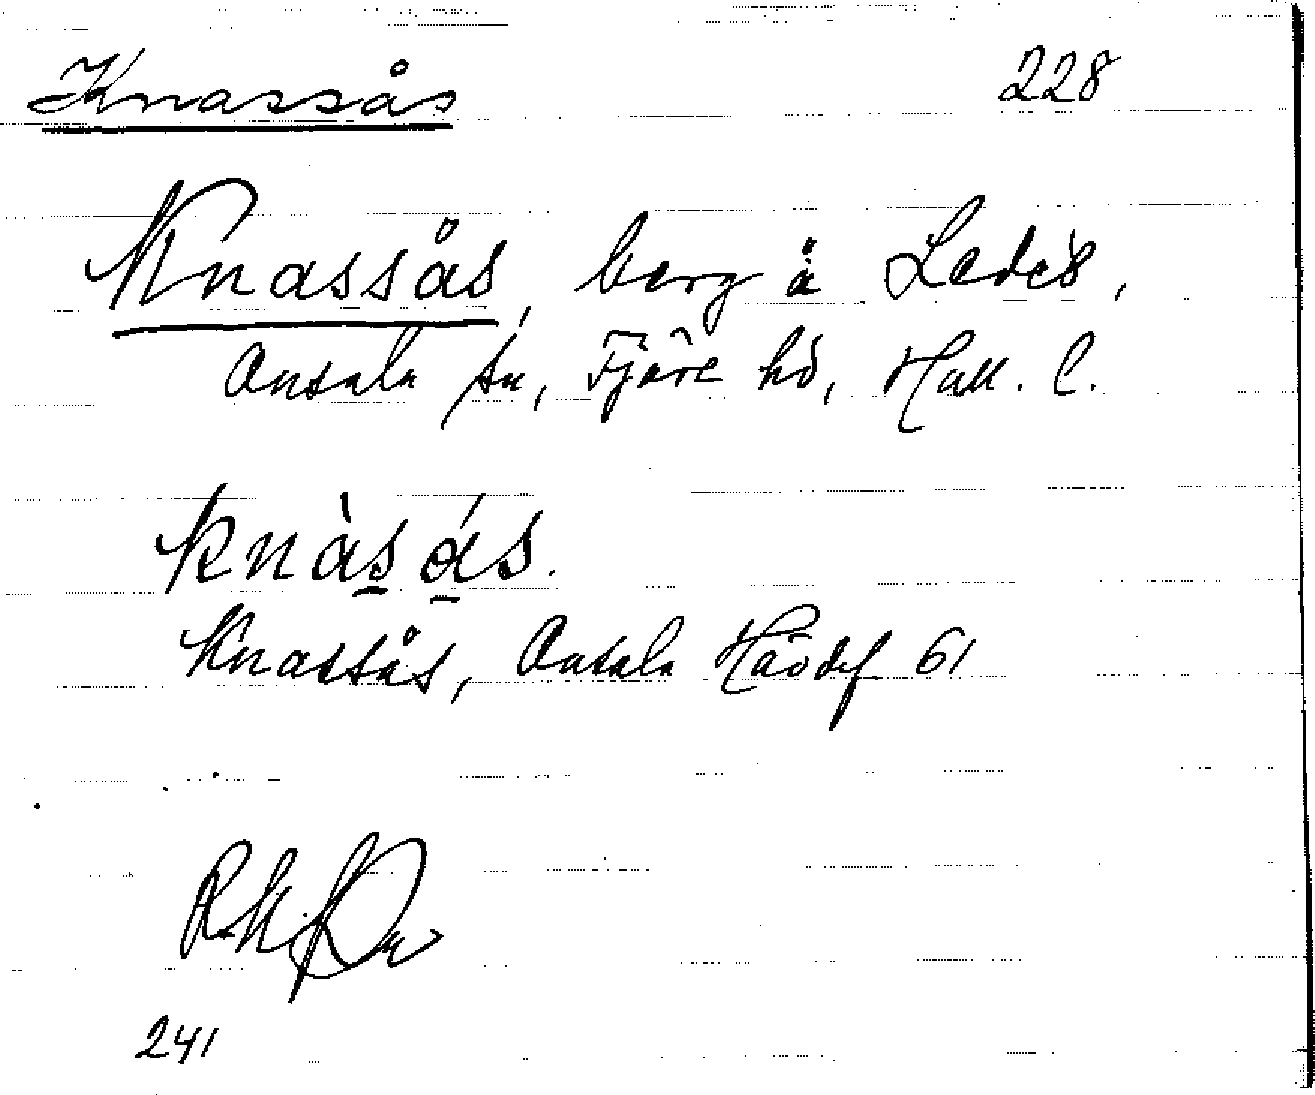 Knassås 228
Knassås, berg å Ledet,
Onsala sn, Fjäre hd, Hall. l.
knàsás.
Knassås, Onsala
61
241